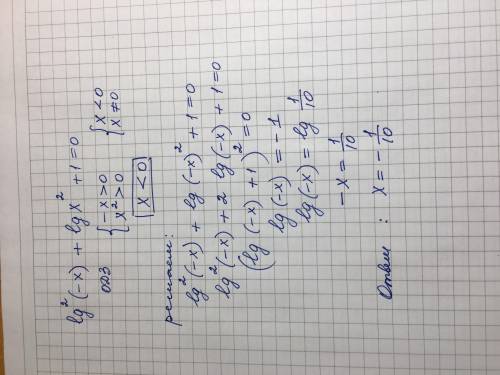 lg²(-x) + lgx² + 1 = 0
ОДЗ { -x > 0 { x < 0
{ x² > 0 { x ≠ 0
x < 0
решаем:
lg²(-x) + lg(-x)² + 1 = 0
lg²(-x) + 2 lg(-x) + 1 = 0
(lg(-x) + 1)² = 0
lg(-x) = -1
lg(-x) = lg 1/10
-x = 1/10
Ответ : x = -1/10